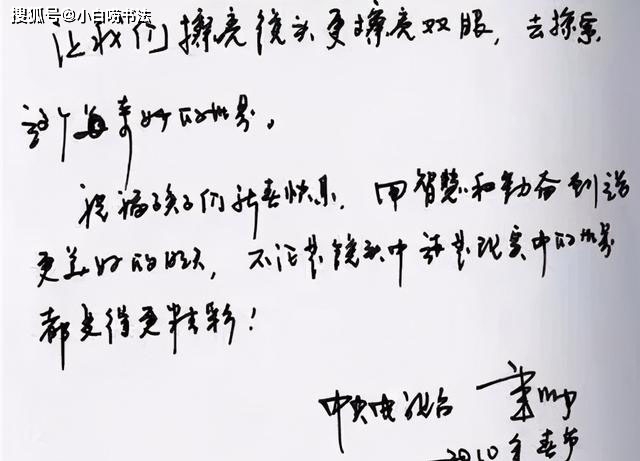 搜狐号@小白喷书法
让我们擦亮镜头更擦亮双眼，去探索
这个奇妙的世界。
祝福孩子们新春快乐，用智慧和勤奋创造
更美好的明天，不论是镜头中还是现实中的世界
都变得更精彩！
中央电视台 董卿
2010年春节